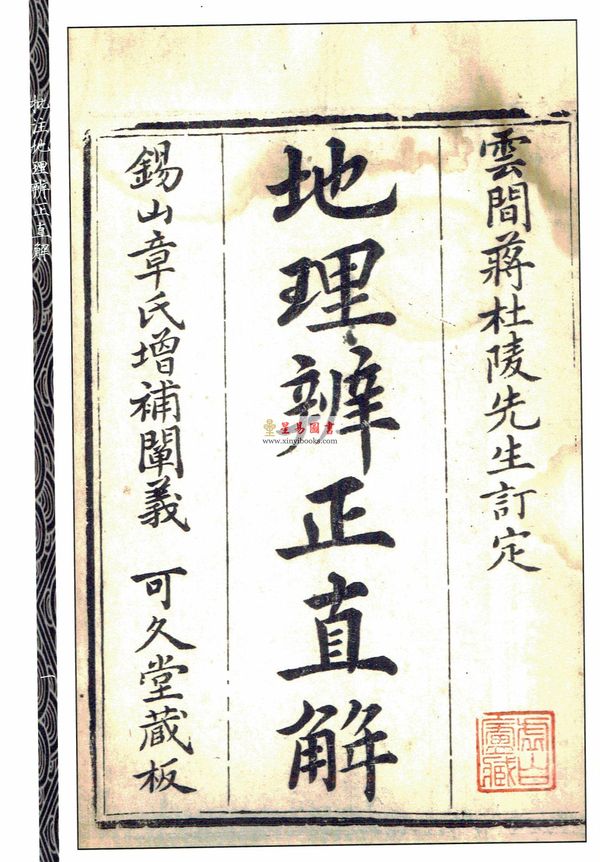 雲間蔣杜陵先生訂定
地理辨正直解
錫山章氏增補闡義 可久堂藏板
批注地理辨正直解
一
星易圖書
www.xinyibooks.com